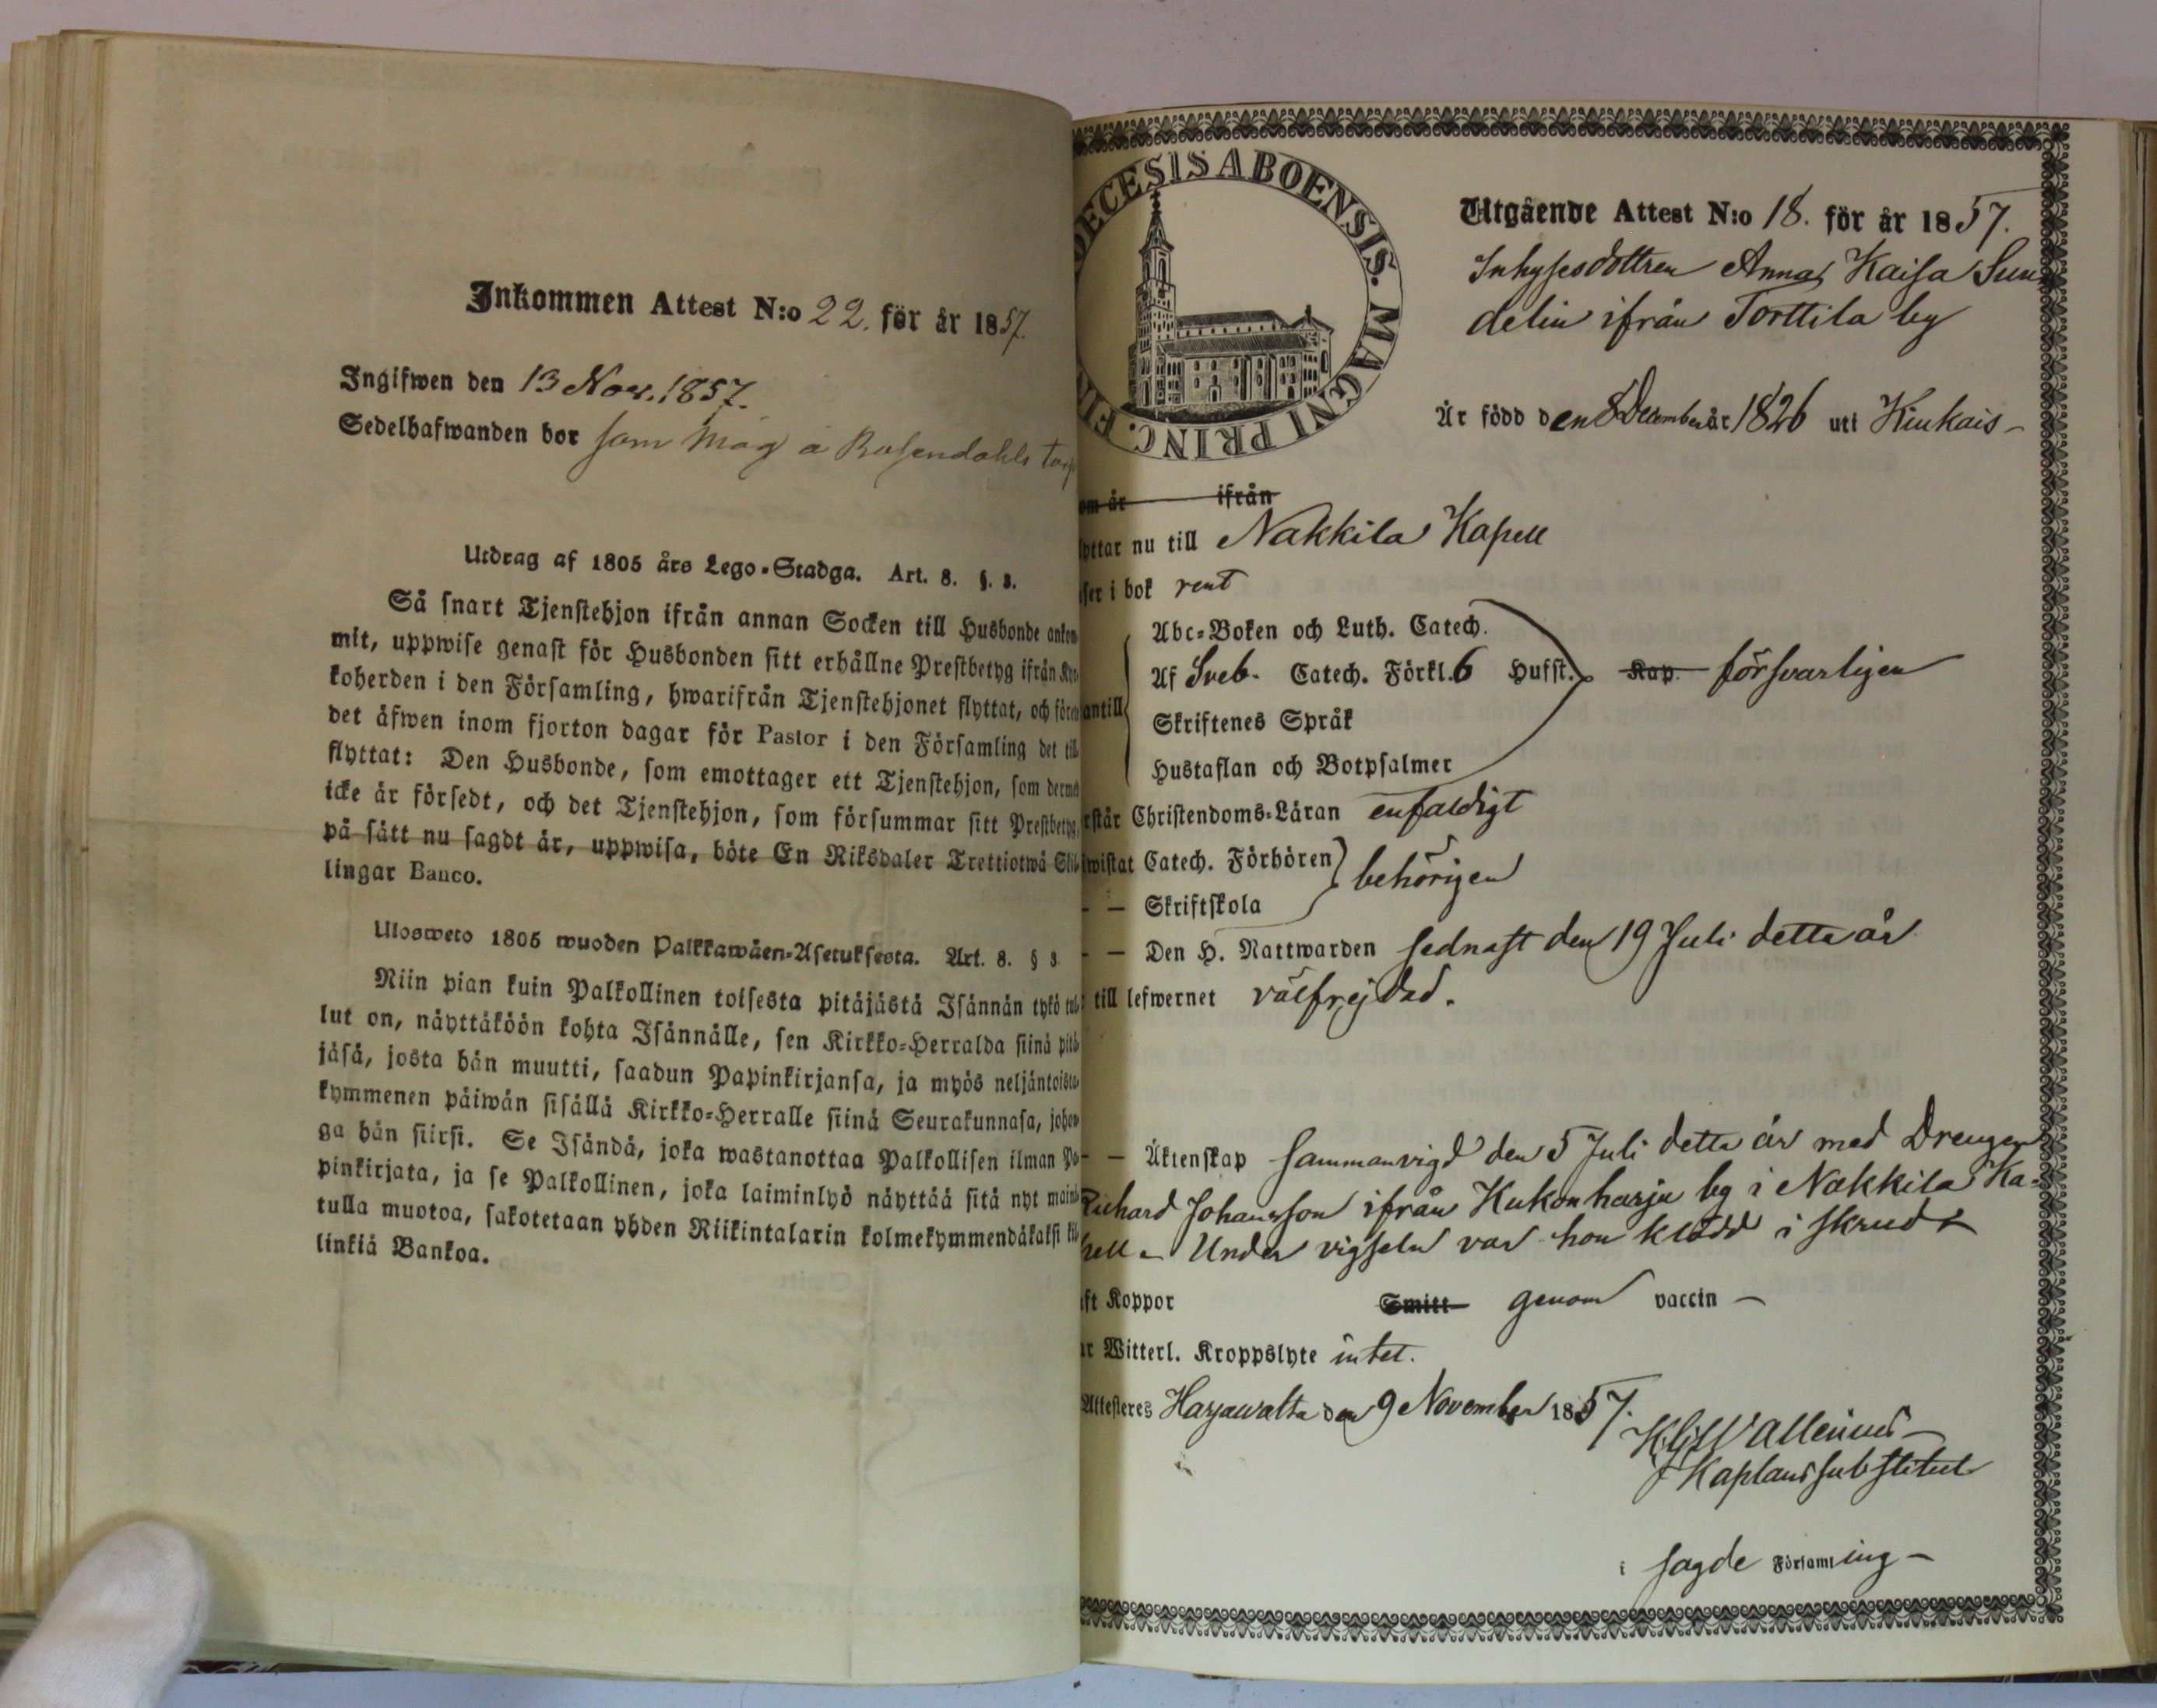 Inkommen Attest N:o 22. för år 1857.
Ingifwen den 13 Nov. 1857.
Sedelhafwanden bor som Måg å Rosendahls torp
Utdrag af 1805 års Lego-Stadga. Art. 8. §. 3.
Så snart Tjenstehjon ifrån annan Socken till Husbonde ankom-
mit, uppwise genast för Husbonden sitt erhållne Prestbetyg ifrån Kyr-
koherden i den Församling, hwarifrån Tjenstehjonet flyttat, och förete
det äfwen inom fjorton dagar för Pastor i den Församling det till-
flyttat: Den Husbonde, som emottager ett Tjenstehjon, som dermed
icke är försedt, och det Tjenstehjon, som försummar sitt Prestbetyg,
på sätt nu sagdt är, uppwisa, böte En Riksdaler Trettiotwå Skil-
lingar Banco.
Ulosweto 1805 wuoden Palkkawäen-Asetuksesta. Art. 8. § 3.
Niin pian kuin Palkollinen toisesta pitäjästä Isännän tykö tul-
lut on, näyttäköön kohta Isännälle, sen Kirkko-Herralda siinä pitä-
jäsä, josta hän muutti, saadun Papinkirjansa, ja myös neljäntoista-
kymmenen päiwän sisällä Kirkko-Herralle siinä Seurakunnasa, johon-
ga hän siirsi. Se Isändä, joka wastanottaa Palkollisen ilman Pa-
pinkirjata, ja se Palkollinen, joka laiminlyö näyttää sitä nyt maini-
tulla muotoa, sakotetaan yhden Riikintalarin kolmekymmendäkaksi kil-
linkiä Bankoa.
DECESIS ABOENSIS. MAGNI PRINC. FIN
Utgående Attest N:o 18. för år 1857.
Inhysesdottren Anna Kaisa Sun-
delin ifrån Torttila by
Är född den 8 December år 1826 uti Kiukais –
om är ifrån
yttar nu till Nakkila Kapell
ser i bok rent
Abc-Boken och Luth. Catech.
Af Sveb. Catech. Förkl. 6 Hufst. Kap. försvarligen
antill
Skriftenes Språk
Hustaflan och Botpsalmer
rstår Christendoms-Läran enfaldigt
wistat Catech. Förhören behörigen
– – Skriftskola
– – Den H. Nattwarden sednast den 19 Juli detta år
till lefwernet välfrejdad.
– – Äktenskap sammanvigd den 5 Juli detta år med Drengen
Richard Johansson ifrån Kukonharju by i Nakkila Ka-
pell – Under vigseln var hon klädd i skrud
ft Koppor Smitt genom vaccin –
ar Witterl. Kroppslyte intet.
Attesteres Harjawalta den 9 November 1857.
Wallenius
Kaplanssubstitut
i sagde Församling –